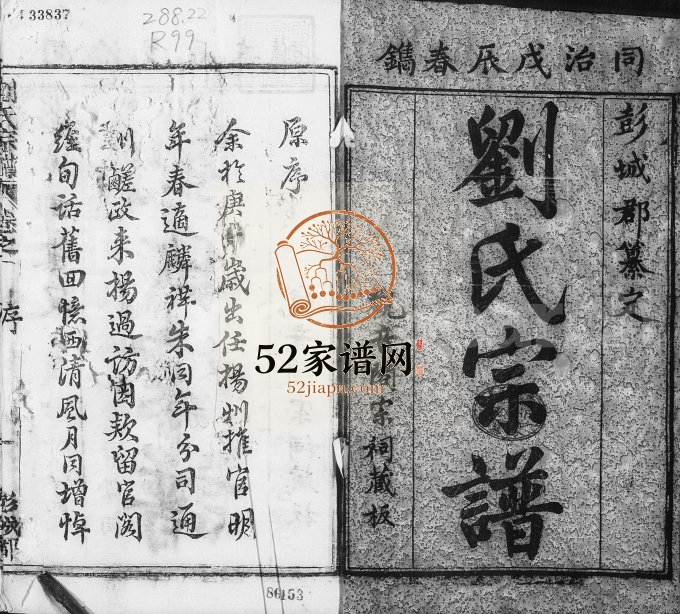 同治戊辰春鐫
彭城郡纂定
劉氏宗譜
宗祠藏板
原序
余於庚歲出任揚州搉官明
年春適麟祥朱同年分司通
州鹾政来揚過訪因欵留官阁
經旬話舊回憶西清風月同增悼
劉氏宗譜
序
彭城郡
33837
288.22
R99
86153
52家谱网
52jiapu.com